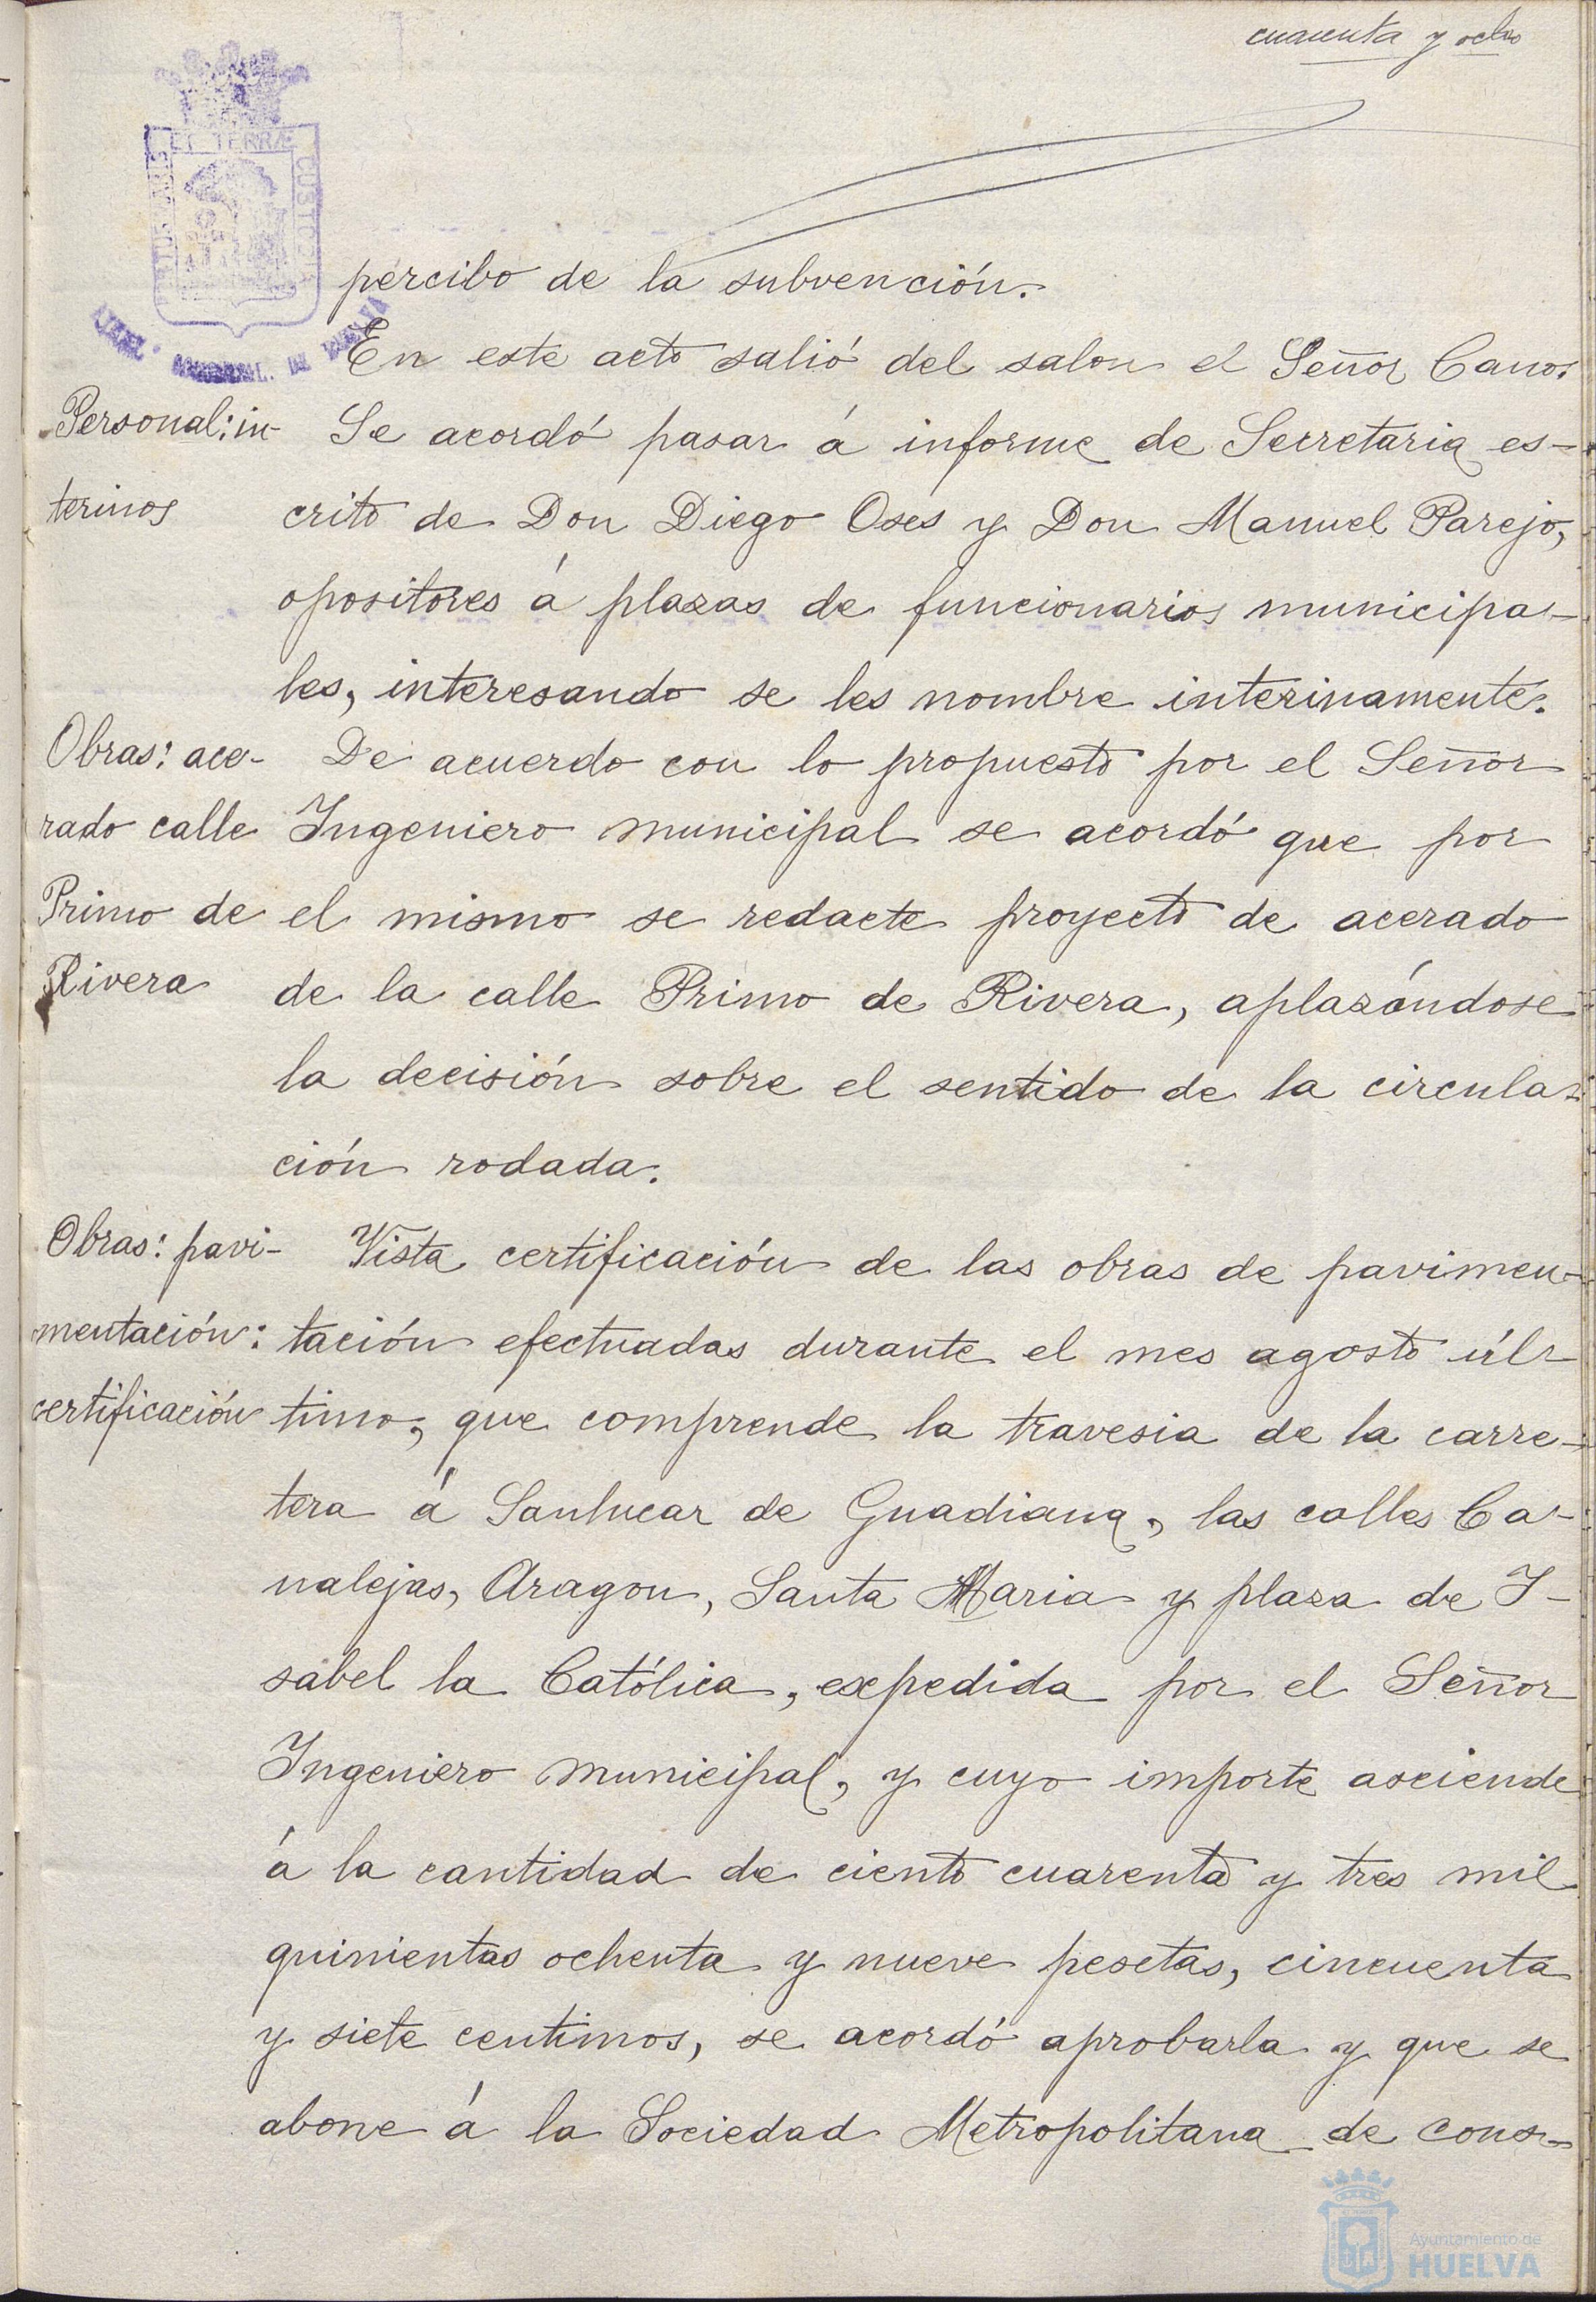 cuarenta y ocho
ET TERRÆ
CUSTODIA
percibo de la subvención.
En este acto salió del salon el Señor Cano.
Personal: in-
Se acordó pasar á informe de Secretaria es-
terinos
crito de Don Diego Oses y Don Manuel Parejo,
opositores á plazas de funcionarios municipa-
les, interesando se les nombre interinamente.
Obras: ace-
De acuerdo con lo propuesto por el Señor
rado calle
Ingeniero municipal se acordó que por
Primo de
el mismo se redacte proyecto de acerado
Rivera
de la calle Primo de Rivera, aplazándose
la decisión sobre el sentido de la circula-
ción rodada.
Obras: pavi-
Vista certificación de las obras de pavimen-
mentación:
tación efectuadas durante el mes agosto úl-
certificación
timo, que comprende la travesia de la carre-
tera á Sanlucar de Guadiana, las calles Ca-
nalejas, Aragon, Santa Maria y plaza de I-
sabel la Católica, expedida por el Señor
Ingeniero municipal, y cuyo importe asciende
á la cantidad de ciento cuarenta y tres mil
quinientas ochenta y nueve pesetas, cincuenta
y siete centimos, se acordó aprobarla y que se
abone á la Sociedad Metropolitana de cons-
Ayuntamiento de
HUELVA